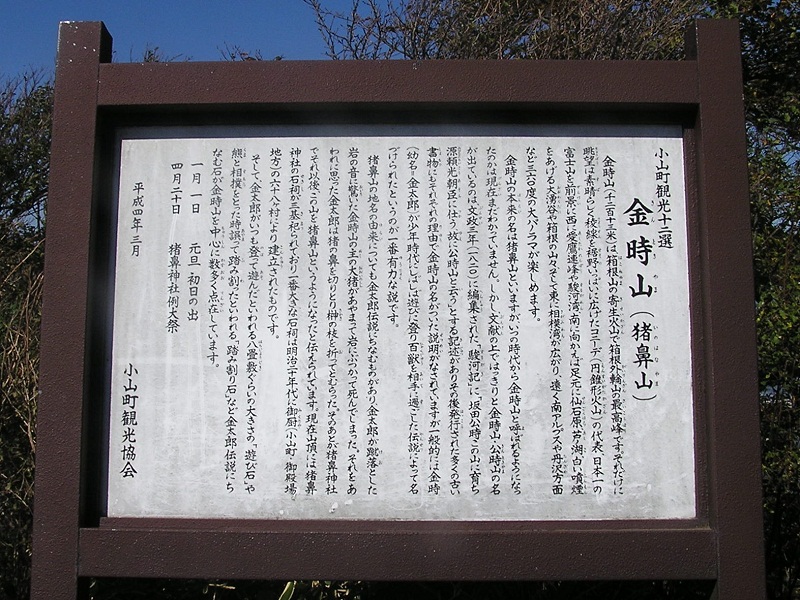 小山町観光十二選
金時山（猪鼻山）
金時山（千二百十三米）は「箱根山の寄生火山で箱根外輪山の最高峰です。それだけに
眺望は素晴らしく稜線を裾野いっぱいに広げたコニーデ（円錐形火山）の代表、日本一の
富士山を前景に西に愛鷹連峰や駿河湾、南に向かえば足元に仙石原、芦ノ湖、白い噴煙
をあげる大湧谷や箱根の山々そして東に相模湾が広がり、遠く南アルプスや丹沢方面
など三六〇度の大パノラマが楽しめます。
金時山の本来の名は猪鼻山といいますが、いつの時代から「金時山」と呼ばれるようになっ
たのかは現在まだわかっていません。しかし、文献の上ではっきりと金時山、公時山の名
が出ているのは文政三年（一八二〇）に編集された「駿河記」に「坂田公時この山に育ち
源頼光朝臣に仕う故に公時山と云う」とする記述がありその後発行された多くの古い
書物にもそれぞれの理由で金時山の名がついた説明がなされていますが一般的には金時
（幼名＝金太郎）が少年時代、しばしば遊びに登り百獣を相手に過ごした伝説によって名
づけられたというのが一番有力な説です。
猪鼻山の地名の由来についても金太郎伝説にちなむものがあり、金太郎が蹴落とした
岩の音に驚いた金時山の主の大猪があやまって岩にぶつかって死んでしまった。それをあ
われに思った金太郎は猪の鼻を切りとり榊の枝を折ってとむらった。そのあとが猪鼻神社
でそれ以後この山を猪鼻山というようになったと伝えられています。現在山頂には猪鼻
神社の石祠が三基祀られており一番大きな石祠は明治二十年代に御厨（小山町、御殿場
地方）の六十八村により建立されたものです。
そして、金太郎がいつも登って遊んだといわれる八畳敷くらいの大きさの「遊び石」や
熊と相撲をとった時誤って踏み割ったといわれる「踏み割り石」など金太郎伝説にち
なむ石が金時山を中心に数多く点在しています。
一月一日　元旦　初日の出
四月二十日　猪鼻神社例大祭
平成四年三月
小山町観光協会